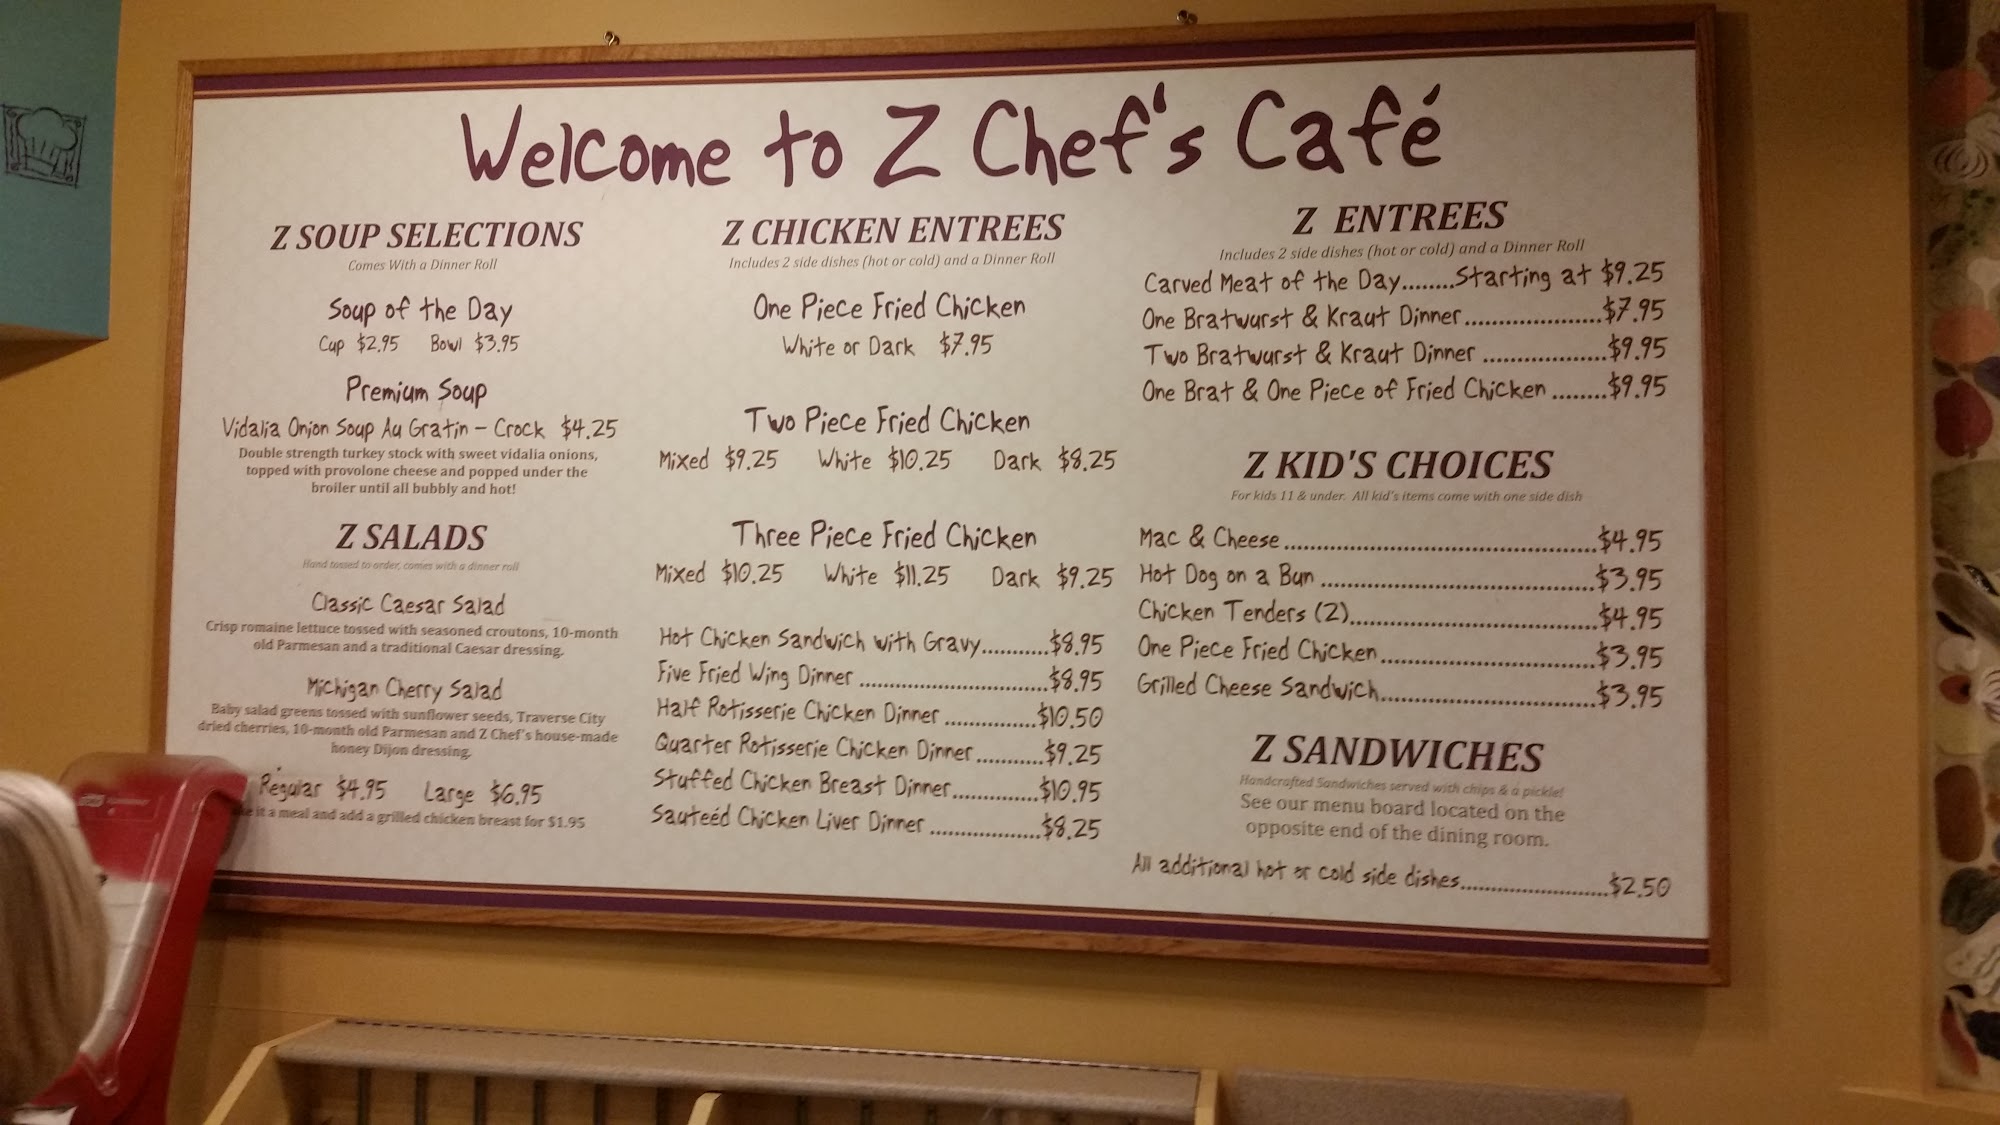 Welcome to Z Chef's Café
Z SOUP SELECTIONS
Comes With a Dinner Roll
Soup of the Day
Cup $2.95 Bowl $3.95
Premium Soup
Vidalia Onion Soup Au Gratin - Crock $4.25
Double strength turkey stock with sweet vidalia onions,
topped with provolone cheese and popped under the
broiler until all bubbly and hot!
Z SALADS
Hand tossed to order, comes with a dinner roll
Classic Caesar Salad
Crisp romaine lettuce tossed with seasoned croutons, 10-month
old Parmesan and a traditional Caesar dressing.
Michigan Cherry Salad
Baby salad greens tossed with sunflower seeds, Traverse City
dried cherries, 10-month old Parmesan and Z Chef's house-made
honey Dijon dressing.
Regular $4.95 Large $6.95
it a meal and add a grilled chicken breast for $1.95
Z CHICKEN ENTREES
Includes 2 side dishes (hot or cold) and a Dinner Roll
One Piece Fried Chicken
White or Dark $7.95
Two Piece Fried Chicken
Mixed $9.25 White $10.25 Dark $8.25
Three Piece Fried Chicken
Mixed $10.25 White $11.25 Dark $9.25
Hot Chicken Sandwich with Gravy...........$8.95
Five Fried Wing Dinner ..............................$8.95
Half Rotisserie Chicken Dinner ..............$10.50
Quarter Rotisserie Chicken Dinner ...........$9.25
Stuffed Chicken Breast Dinner..............$10.95
Sauteéd Chicken Liver Dinner ..................$8.25
Z ENTREES
Includes 2 side dishes (hot or cold) and a Dinner Roll
Carved Meat of the Day........Starting at $9.25
One Bratwurst & Kraut Dinner.....................$7.95
Two Bratwurst & Kraut Dinner ...................$9.95
One Brat & One Piece of Fried Chicken ........$9.95
Z KID'S CHOICES
For kids 11 & under. All kid's items come with one side dish
Mac & Cheese................................................$4.95
Hot Dog on a Bun ..........................................$3.95
Chicken Tenders (2)......................................$4.95
One Piece Fried Chicken.................................$3.95
Grilled Cheese Sandwich.................................$3.95
Z SANDWICHES
Handcrafted Sandwiches served with chips & a pickle!
See our menu board located on the
opposite end of the dining room.
All additional hot or cold side dishes.......................$2.50